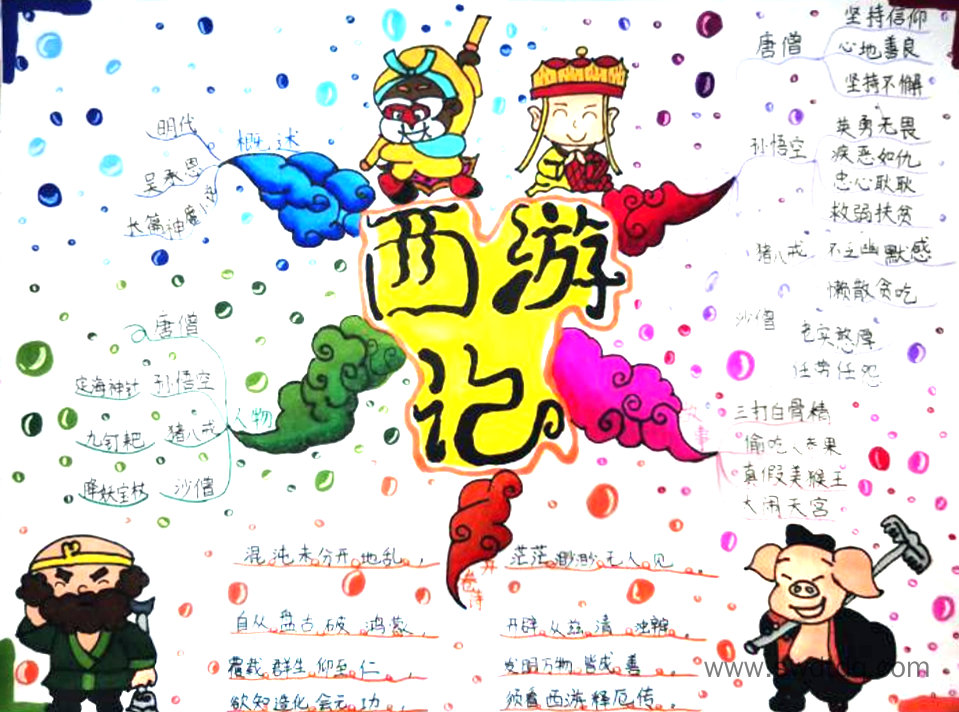 西游记
概述
明代
吴承恩
长篇神魔小说
唐僧
坚持信仰
心地善良
坚持不懈
孙悟空
英勇无畏
疾恶如仇
忠心耿耿
救弱扶贫
猪八戒
不乏幽默感
懒散贪吃
沙僧
老实憨厚
任劳任怨
人物
唐僧
孙悟空
定海神针
猪八戒
九钉耙
沙僧
降妖宝杖
故事
三打白骨精
偷吃人参果
真假美猴王
大闹天宫
开卷诗
混沌未分开地乱，
茫茫渺渺无人见。
自从盘古破鸿蒙，
开辟从兹清浊辨。
覆载群生仰至仁，
发明万物皆成善。
欲知造化会元功，
须看西游释厄传。